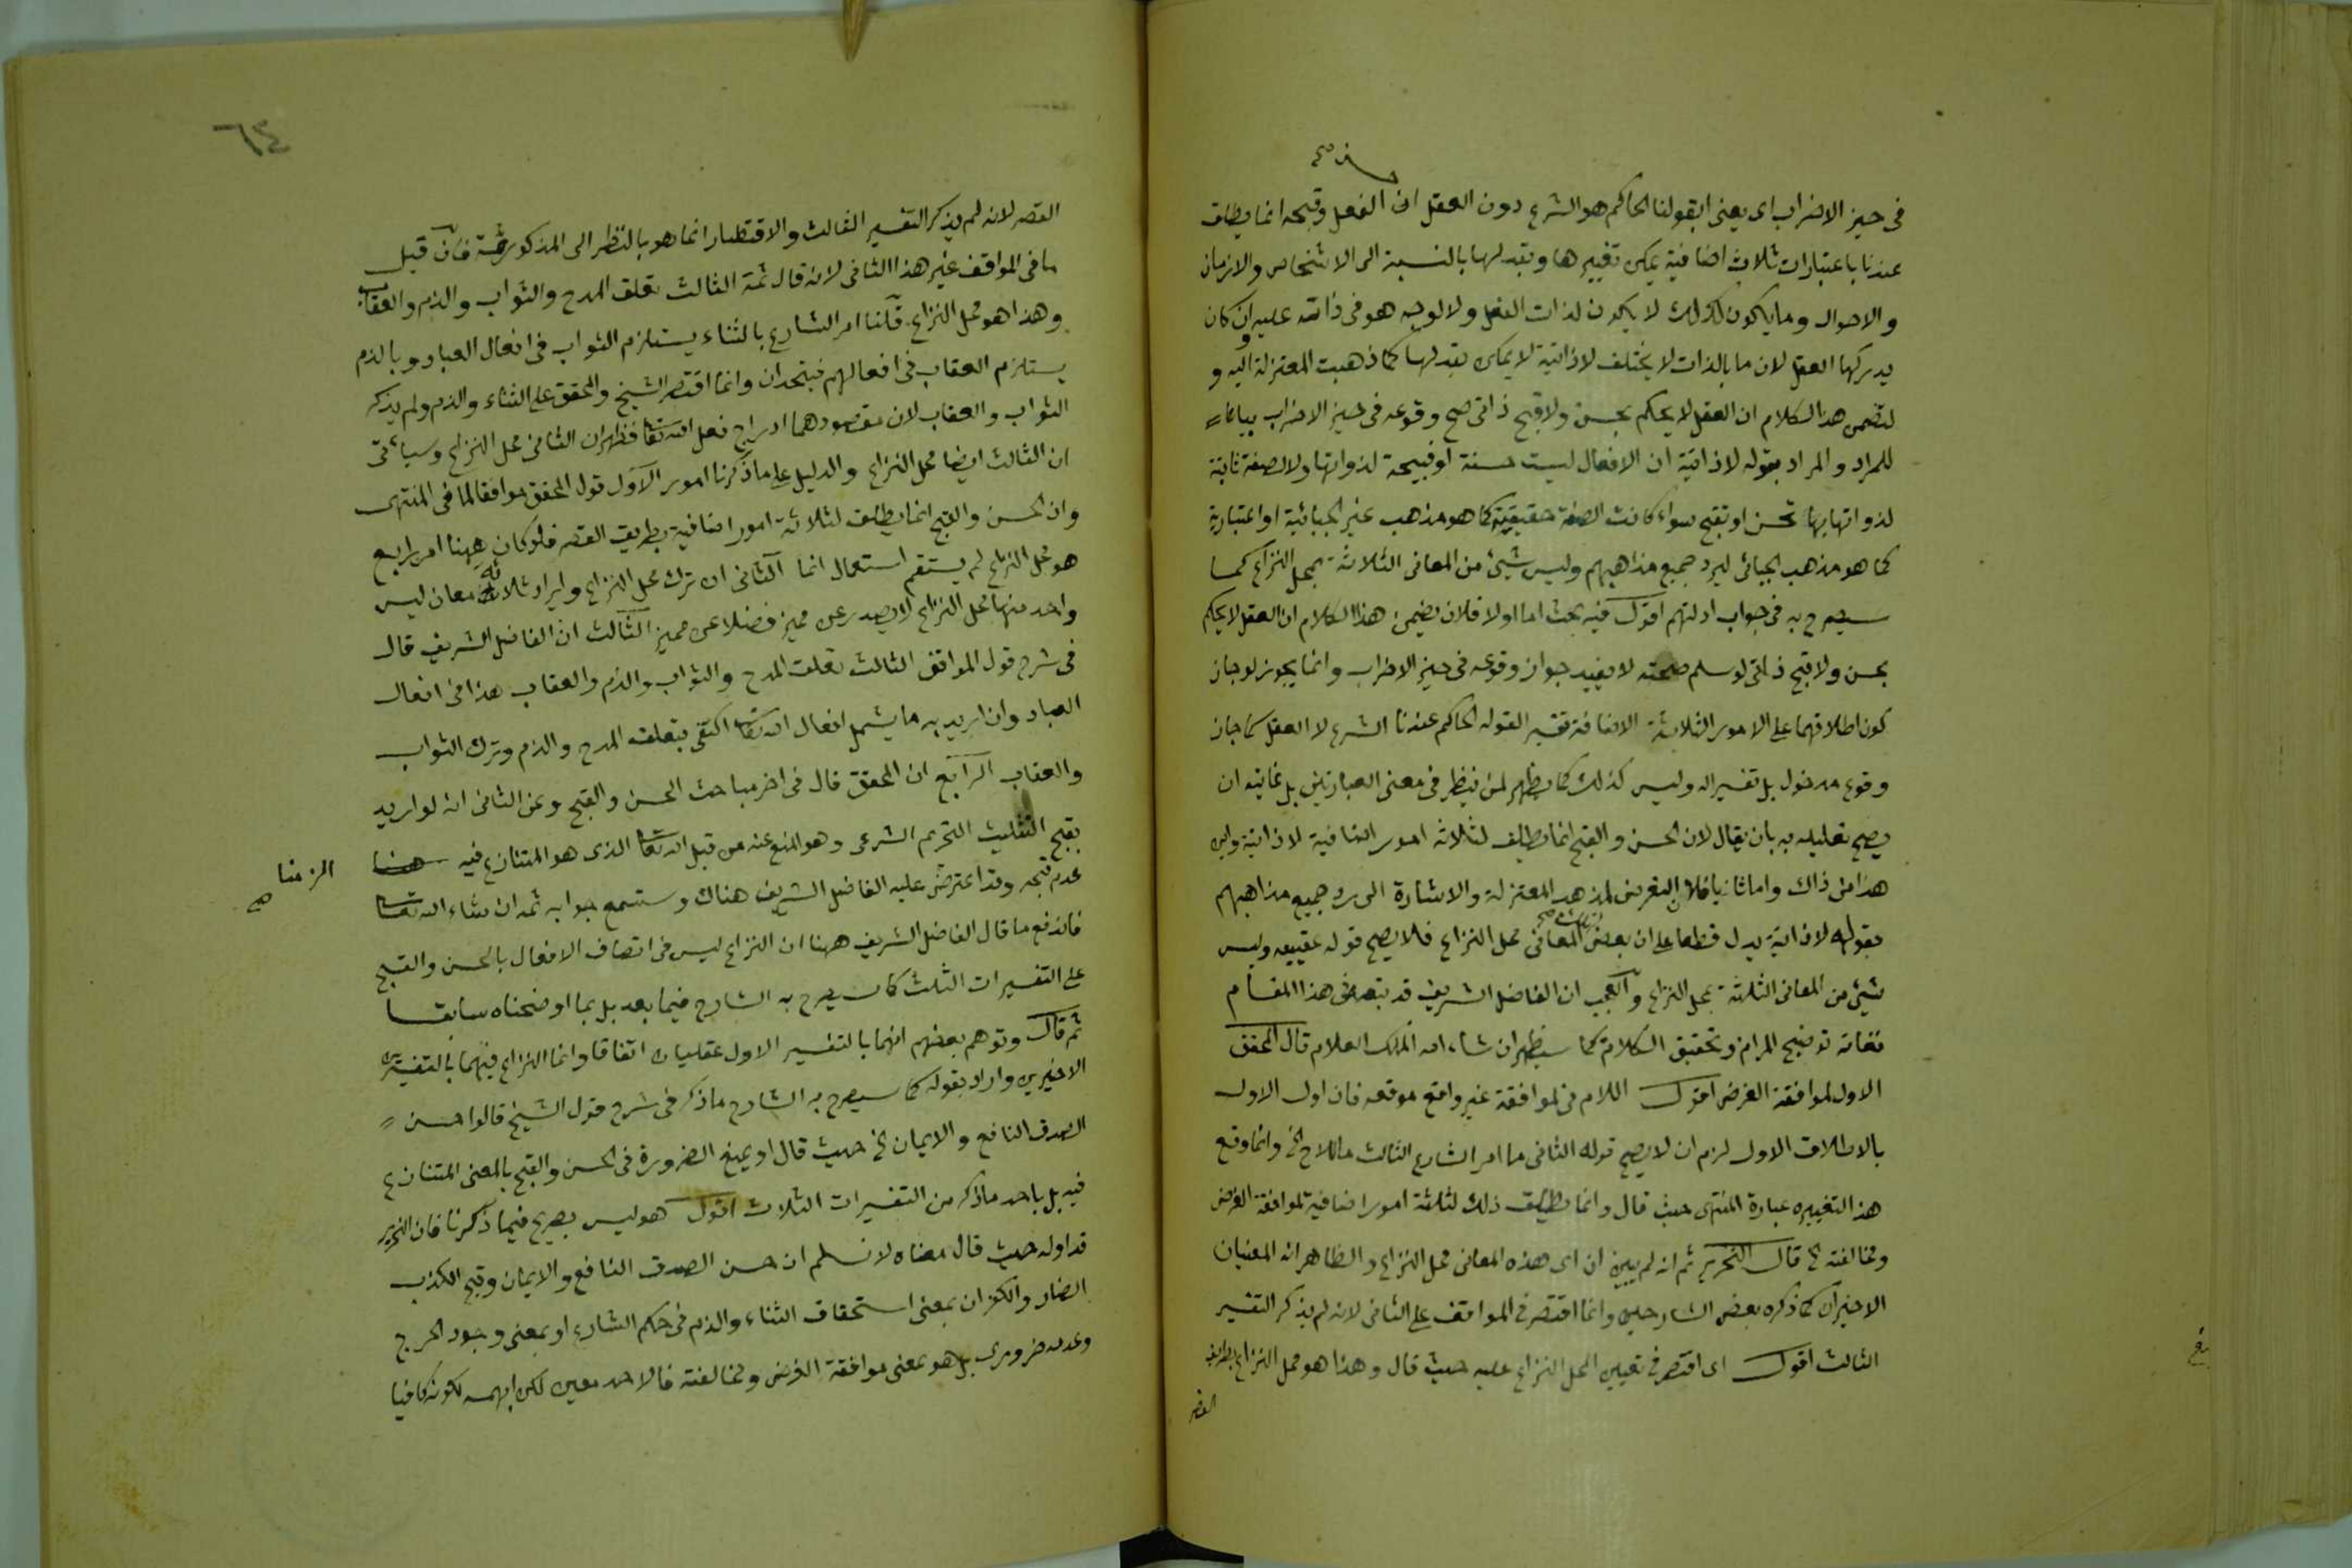 في حيز الاضراب اي يعني ابقولنا الحاكم هو الشرع دون العقل ان الفعل وقبحه انما يطلق
عندنا باعتبارات ثلاث اضافية يمكن تغييرها وتبدلها بالنسبة الى الاشخاص والازمان
والاحوال وما يكون كذلك لا يكون لذات الفعل ولا لوجه هو في ذاته عليه وان كان
يدركها العقل لان ما بالذات لا يختلف لا ذاتية لا يمكن تبدلها كما ذهبت المعتزلة اليه و
لتضمن هذا الكلام ان العقل لا يحكم بحسن ولا قبح ذاتي صح وقوعه في حيز الاضراب بيانا
للمراد والمراد بقوله لا ذاتية ان الافعال ليست حسنة او قبيحة لذواتها ولا لصفة ثابتة
لذواتها بها تحسن او تقبح سواء كانت الصفة حقيقية كما هو مذهب غير الجبائية او اعتبارية
كما هو مذهب الجبائي ليرد جميع مذاهبهم وليس شيئ من المعاني الثلاثة بمحل النزاع كما
سيصرح به في جواب ادلتهم اقول فيه بحث اما اولا فلان تضمن هذا الكلام ان العقل لا يحكم
بحسن ولا قبح ذاتي لو سلم صحته لا يفيد جواز وقوعه في حيز الاضراب وانما يجوز لو جاز
كون اطلاقهما على الامور الثلاثة الاضافة تفسير القوله الحاكم عندنا الشرع لا العقل كما جاز
وقوع مدخول بل تفسيرا له وليس كذلك كما يظهر لمن ينظر في معنى العبارتين بل غايته ان
يصح تعليله به بان يقال لان الحسن والقبح انما يطلق لثلاثة امور اضافية لا ذاتية واين
هذا من ذاك واما ثانيا فلان التعرض لمذهب المعتزلة والاشارة الى رد جميع مذاهبهم
بقوله لا ذاتية يدل قطعا على ان بعض المعاني محل النزاع فلا يصح قوله عقيبه وليس
شيئ من المعاني الثلثة بمحل النزاع والعجب ان الفاضل الشريف قد تبعه في هذا المقام
فعليه توضيح المرام وتحقيق الكلام كما سيظهر ان شاء الله الملك العلام قال المحقق
الاول لموافقة الغرض اقول اللام في لموافقة غير واقع موقعه فان اول الاول
بالاطلاق الاول لزم ان لا يصح قوله الثاني ما امر الشارع الثالث ما لا حرج الخ وانما وقع
هذا التغييره عبارة المنتهى حيث قال وانما يطلق ذلك لثلثة امور اضافية لموافقة الغرض
ومخالفته الخ قال النحرير ثم انه لم يبين ان اي هذه المعاني محل النزاع والظاهر انه المعنيان
الاخيران كما ذكره بعض الشارحين وانما اقتصر في المواقف على الثاني لانه لم يذكر التفسير
الثالث اقول اي اقتصر في تعيين المحل النزاع عليه حيث قال وهذا هو محل النزاع بطريق
القصر
٦٤
القصر لانه لم يذكر التفسير الثالث والاقتصار انما هو بالنظر الى المذكور ثمة فان قيل
ما في المواقف غير هذا الثاني لانه قال ثمة الثالث تعلق المدح والثواب والذم والعقاب
وهذا هو محل النزاع قلنا امر الشارع بالثناء يستلزم الثواب في افعال العباد وبالذم
يستلزم العقاب في افعالهم فيتحدان وانما اقتصر الشيخ والمحقق على الثناء والذم ولم يذكر
الثواب والعقاب لان مقصودهما ادراج فعل الله تعا فظهر ان الثاني محل النزاع وسيأتي
ان الثالث ايضا محل النزاع والدليل على ما ذكرنا امور الاول قول المحقق موافقا لما في المنتهى
وان الحسن والقبح انما يطلق لثلاثة امور اضافية بطريق القصر فلو كان ههنا امر رابع
هو محل النزاع لم يستقم استعمال انما الثاني ان ترك محل النزاع وايراد ثلاثة معان ليس
واحد منها محل النزاع لا يصدر عن مميز فضلا عن مميز الثالث ان الفاضل الشريف قال
في شرح قول المواقف الثالث تعلق المدح والثواب والذم والعقاب هذا في افعال
العباد وان اريد به ما يشمل افعال الله تعا اكتفي بتعلق المدح والذم وترك الثواب
والعقاب الرابع ان المحقق قال في اخر مباحث الحسن والقبح وعن الثاني انه لو اريد
بقبح التثليث التحريم الشرعي وهو المنع عنه من قبل الله تعا الذي هو المتنازع فيه
الزمنا صح
عدم قبحه وقد اعترض عليه الفاضل الشريف هناك وستسمع جوابه ثمه ان شاء الله تعا
فاندفع ما قال الفاضل الشريف ههنا ان النزاع ليس في اتصاف الافعال بالحسن والقبح
على التفسيرات الثلث كما سيصرح به الشارح فيما بعد بل بما اوضحناه سابقا
ثم قال وتوهم بعضهم انهما بالتفسير الاول عقليان اتفاقا وانما النزاع فيهما بالتفسيرين
الاخيرين واراد بقوله كما سيصرح به الشارح ما ذكر في شرح قول الشيخ قالوا حسن
الصدق النافع والايمان الخ حيث قال او يمنع الضرورة في الحسن والقبح بالمعنى المتنازع
فيه بل باحد ما ذكر من التفسيرات الثلاث اقول هو ليس بصريح فيما ذكرنا فان النحرير
قد اوله حيث قال معناه لا نسلم ان حسن الصدق النافع والايمان وقبح الكذب
الضار والكفران بمعنى استحقاق الثناء والذم في حكم الشارع او بمعنى وجود الحرج
وعدمه ضروري بل هو بمعنى موافقة الغرض ومخالفته فالاحد معين لكن ابهمه لكونه كافيا